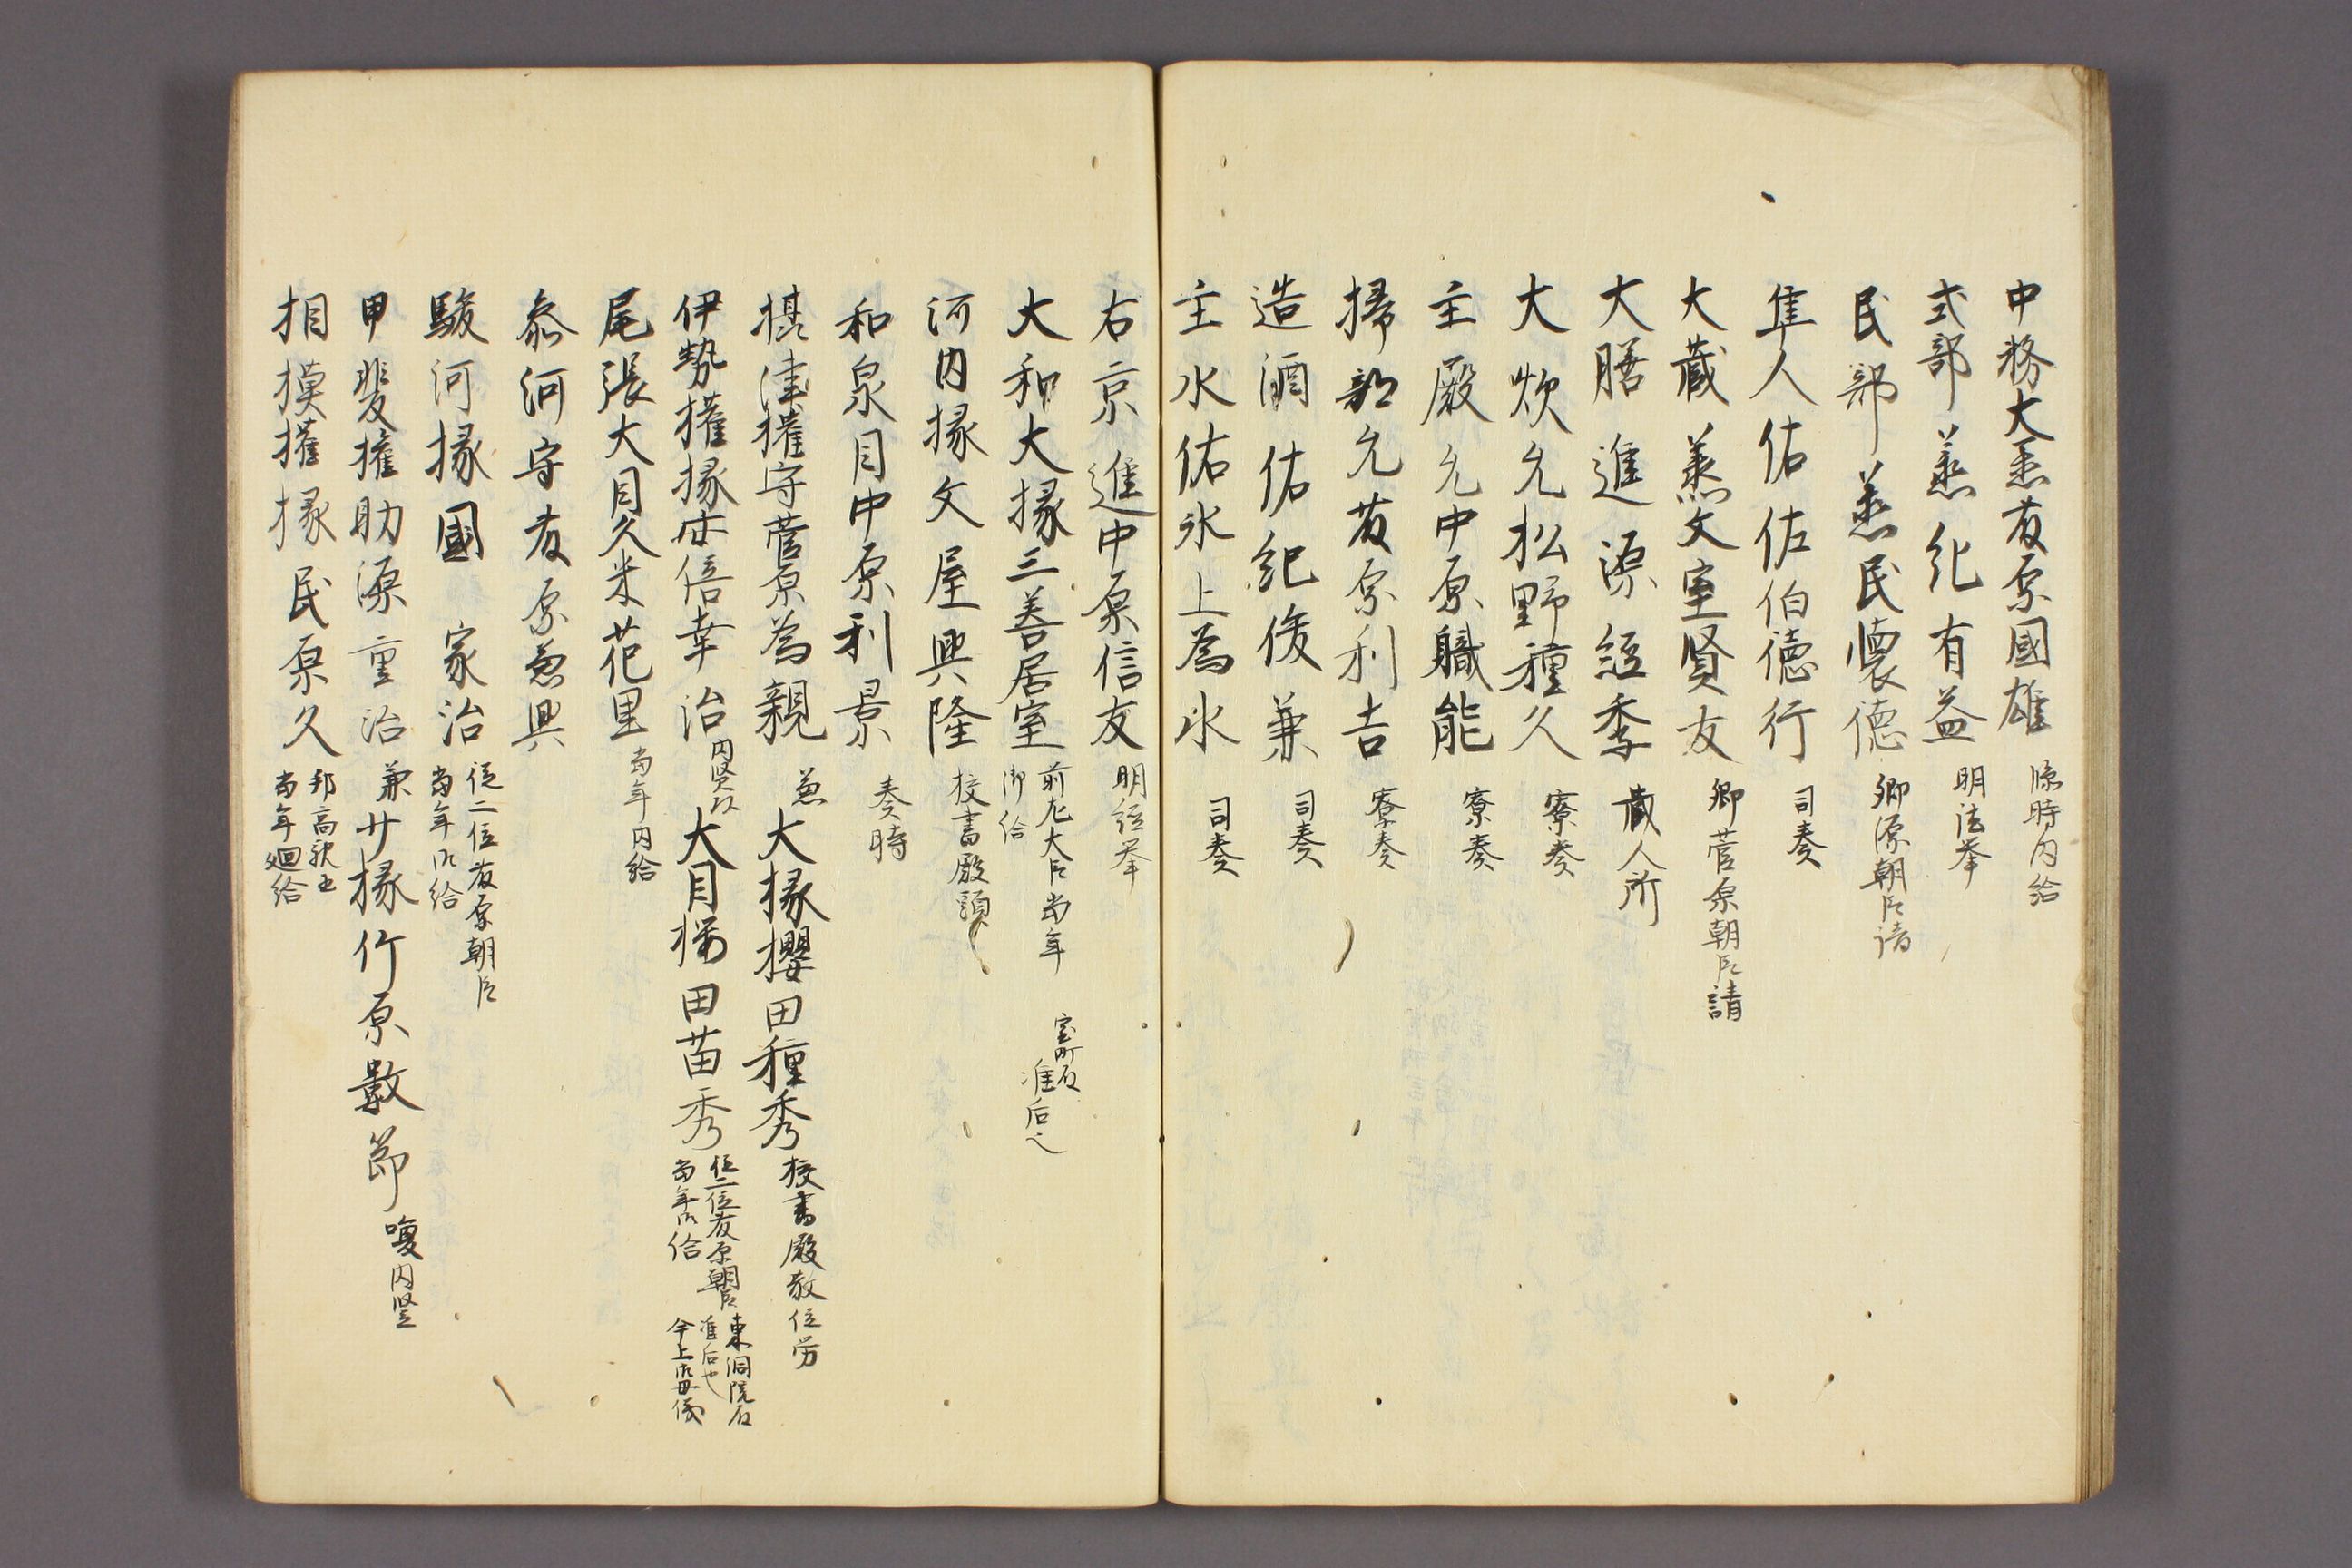 中務大丞藤原國雄 臨時内給
式部丞紀有益 明法挙
民部丞民懐徳 卿源朝臣請
隼人佑佐伯徳行 司奏
大蔵丞文室賢友 卿菅原朝臣請
大膳進源経季 蔵人所
大炊允松野種久 寮奏
主殿允中原職能 寮奏
掃部允藤原利吉 寮奏
造酒佑紀俊兼 司奏
主水佑氷上為氷 司奏
右京進中原信友 明経挙
大和大掾三善居室 前左大臣当年
御給 室町殿
准后也
河内掾文屋興隆 校書殿頭
和泉目中原利景 奏時
摂津権守菅原為親 兼 大掾櫻田種秀 校書殿散位労
伊勢権掾安倍幸治 内竪頭 大目播田苗秀 従二位藤原朝臣
当年御給 東洞院殿
准后也
今上御母儀
尾張大目久米花里 当年内給
参河守藤原兼興
駿河掾國 家治 従二位藤原朝臣
当年御給
甲斐権助源重治 兼 少掾竹原數節 喚内竪
相摸権掾民原久 邦高親王
当年廻給